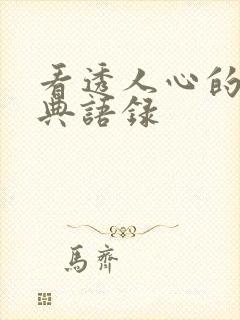 看透人心的
典語録
馬齊